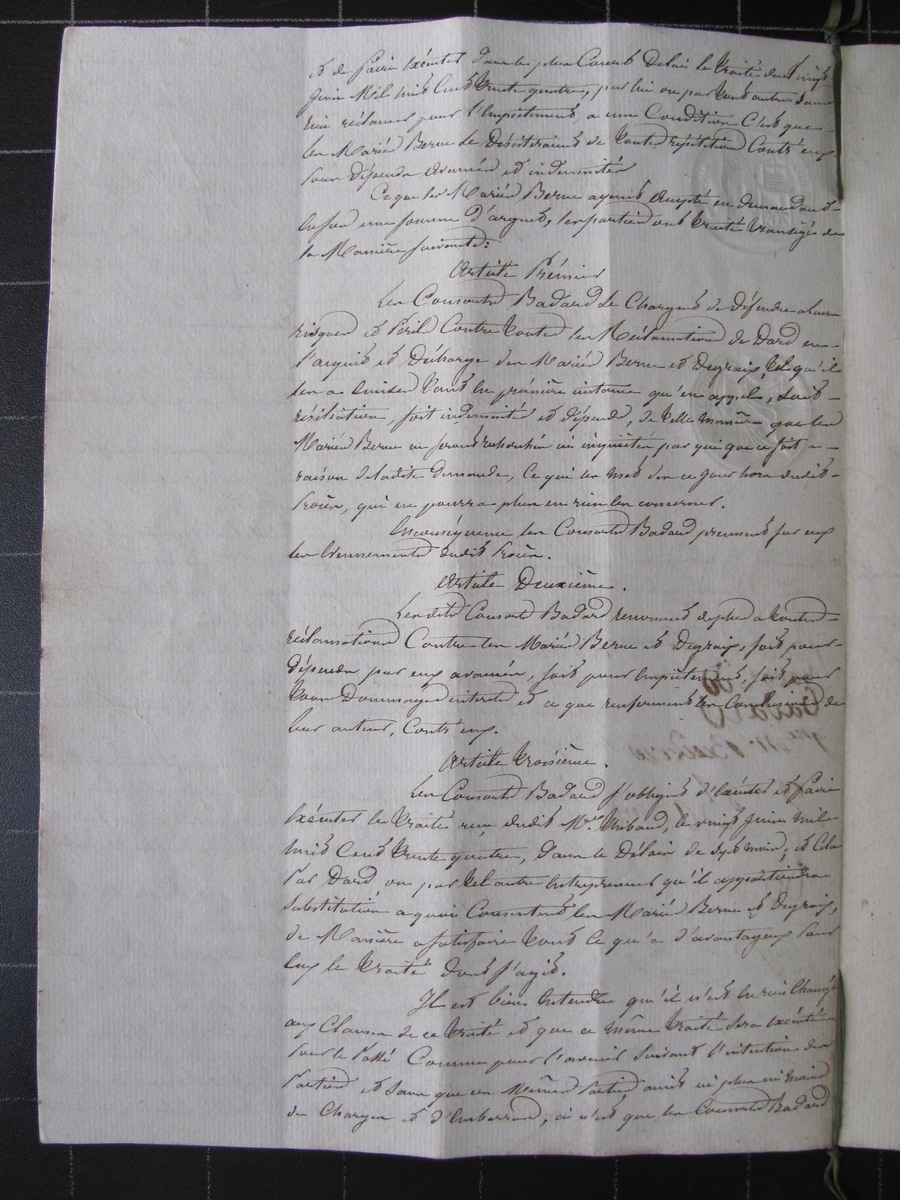 et de faire exécuter dans le plus court delai le traité du vingt
juin mil huit cent trente quatre, par lui ou par tout autre sans
rien réclamer pour l'empietement, a une condition c'est que
les Mariés Berne se désisteraient de toutes répétition contr'eux
pour dépends avancés et indemnités
Ce que les Mariés Berne ayant accepté en demandant
une somme d'argent, les parties ont traité transigé de
la Manière suivante:
Article Prémier
Les Consorts Badard se chargent de défendre a leurs
risques et péril contre toutes les Réclamations de Dard en
l'acquit et décharge des Mariés Berne et Degraix, tel qu'il
les a tant en première instance qu'en appel, soit
résiliation, soit indemnité et dépends, de telle manière que les
Mariés Berne ne seront recherchés ni inquiétés par qui que ce soit a
raison de ladite demande, ce qui les met dès ce jour hors dudit
Procès, qui ne pourra plus en rien les concerner.
En conséquence les Consorts Badard prennent sur eux
les évenements dudit Procès.
Article Deuxième.
Lesdits Consorts Badard renoncent de plus a toutes
réclamations contre les Mariés Berne et Degraix, soit pour
dépends par eux avancés, soit pour empietement, soit pour
tous dommages intérêts et ce que renferment les conclusions de
leur auteur, contr'eux.
Article troisième.
Les Consorts Badard s'obligent d'exécuter et faire
exécuter le traité reçu dudit Me. Thibaud, le vingt juin mil
huit cent trente quatre, dans le délai de six mois, et cela
par Dard ou par tel autre entrepreneur qu'il appartiendra
substitution a quoi consentent les Mariés Berne et Degraix,
de manière a satisfaire tout ce qu'a d'avantageux pour
eux le traité dont s'agit.
Il est bien entendu qu'il n'est en rien changé
aux clauses de ce traité et que ce même traité sera exécuté
pour le passé comme pour l'avenir suivant l'intention des
Parties et sans que ces mêmes Parties aient ni plus ni moins
de charges et d'embarras, si n'est que les Consorts Badard